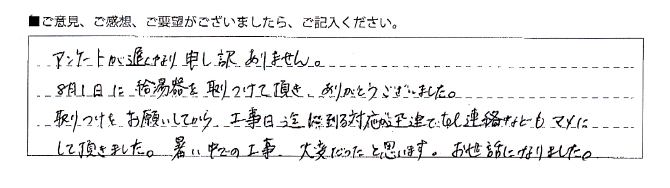 ■ご意見、ご感想、ご要望がございましたら、ご記入ください。
アンケートが遅くなり申し訳ありません。
8月1日に給湯器を取りつけて頂き、ありがとうございました。
取りつけをお願いしてから、工事日迄に到る対応も迅速で 連絡などもマメに
して頂きました。暑い中での工事、大変だったと思います。お世話になりました。